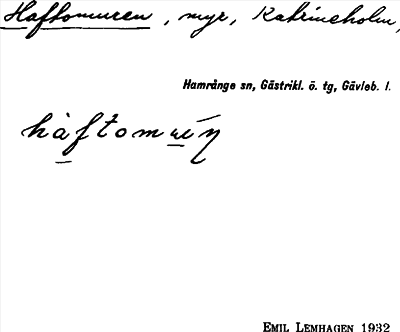 Haftomuren, myr, Katrineholm,
Hamrånge sn, Gästrikl. ö. tg, Gävleb. l.
hàftomurén
EMIL LEMHAGEN 1932